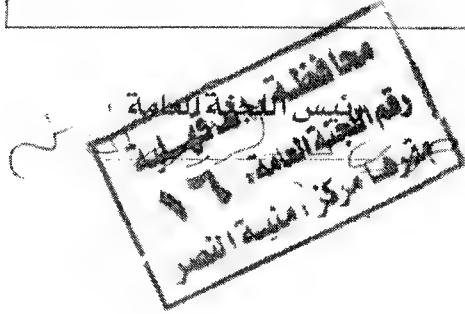 رئيس اللجنة العامة :
محافظة الدقهلية
رقم اللجنة العامة: ١٦
مقرها مركز: منية النصر